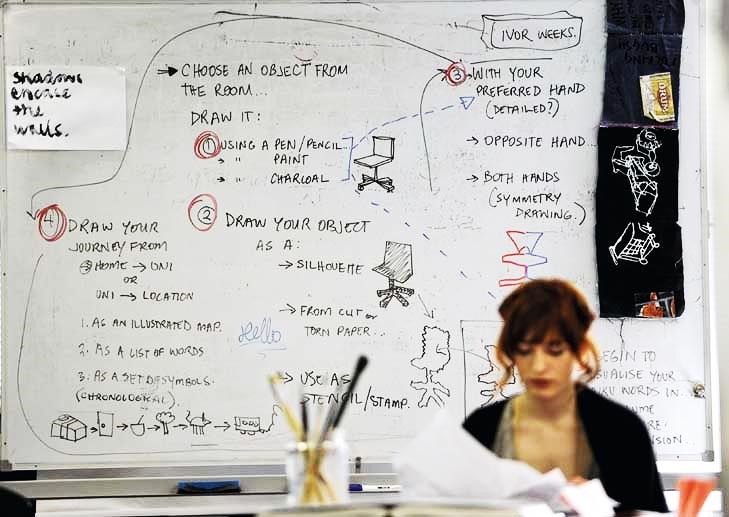 IVOR WEEKS.
shadows
encase
the
walls.
CHOOSE AN OBJECT FROM
THE ROOM...
DRAW IT:
1 USING A PEN/PENCIL..
" PAINT
" CHARCOAL
2 DRAW YOUR OBJECT
AS A:
SILHOUETTE
FROM CUT OR
TORN PAPER...
USE AS
STENCIL/STAMP.
3 WITH YOUR
PREFERRED HAND
(DETAILED?)
OPPOSITE HAND...
BOTH HANDS
(SYMMETRY
DRAWING.)
4 DRAW YOUR
JOURNEY FROM
HOME → UNI
OR
UNI → LOCATION
1. AS AN ILLUSTRATED MAP.
2. AS A LIST OF WORDS
3. AS A SET OF SYMBOLS.
(CHRONOLOGICAL).
Hello
TO
YOUR
WORDS IN..
DRUM